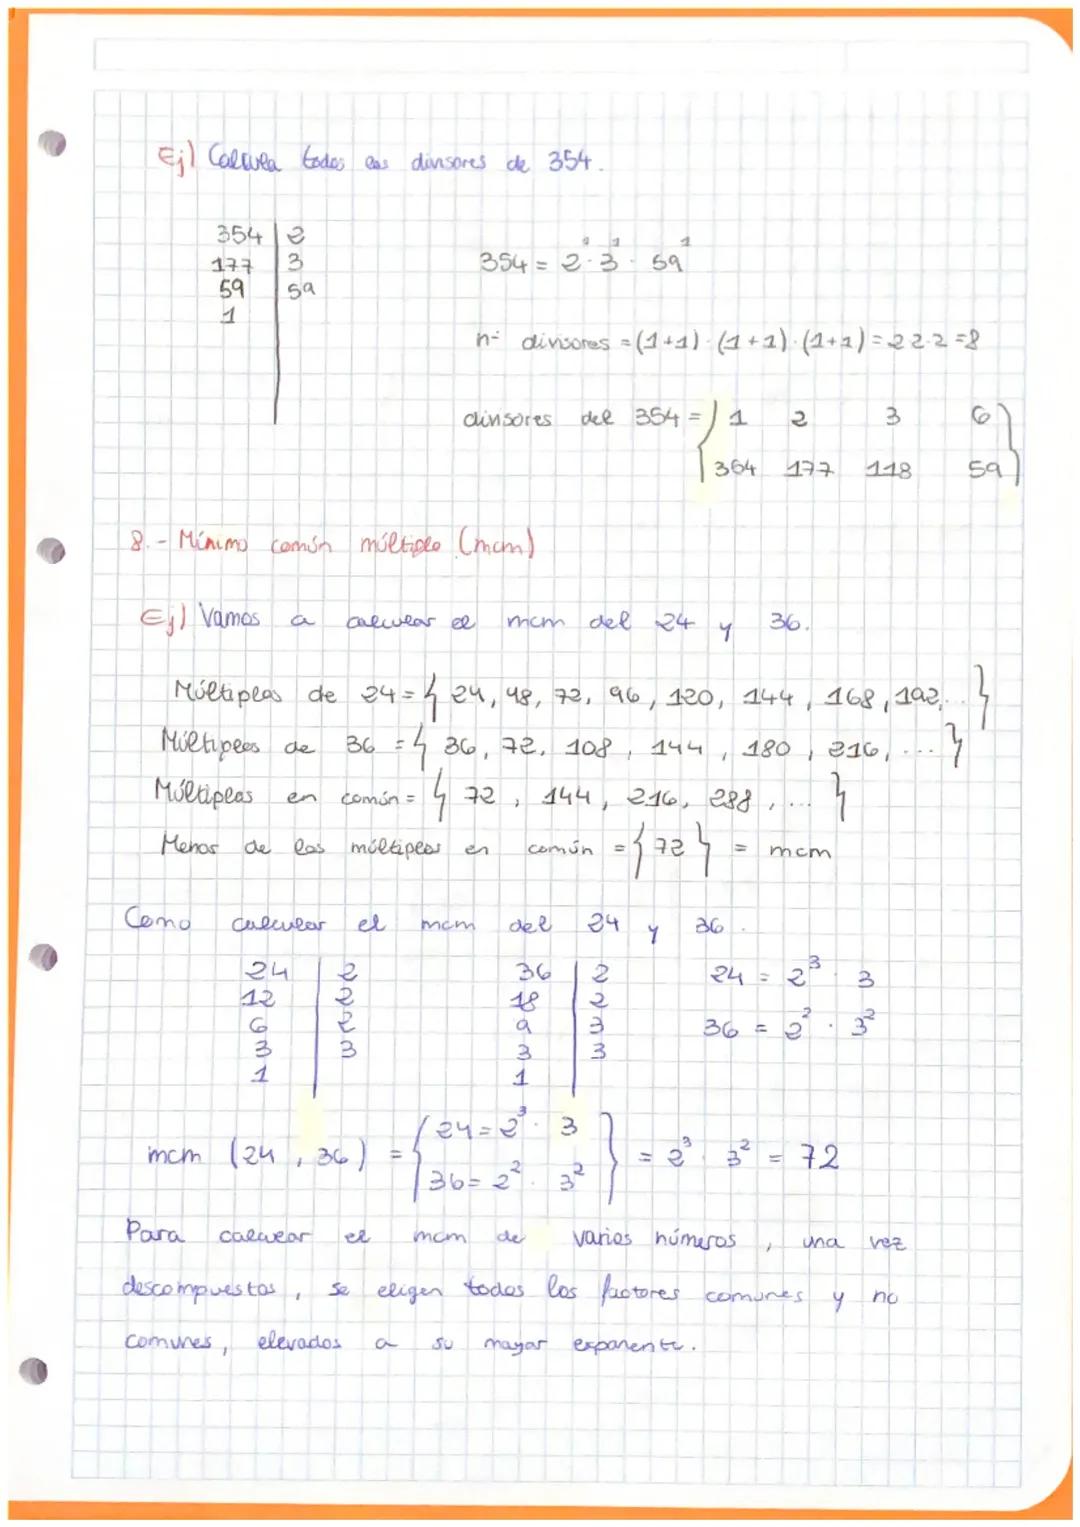 Ej) Calcula todos los divisores de 354.
354 | 2
177 | 3
59 | 59
1
354 = 2¹ · 3¹ · 59¹
nº divisores = (1+1) · (1+1) · (1+1) = 2 2·2 = 8
divisores del 354 = { 1 2 3 6
364 177 118 59 }
8.- Mínimo común múltiplo (mcm)
Ej) Vamos a calcular el mcm del 24 y 36.
Múltiplos de 24 = { 24, 48, 72, 96, 120, 144, 168, 192, ... }
Múltiplos de 36 = { 36, 72, 108, 144, 180, 216, ... }
Múltiplos en común = { 72, 144, 216, 288, ... }
Menor de los múltiplos en común = { 72 } = mcm
Como calcular el mcm del 24 y 36.
24 | 2 36 | 2 24 = 2³ · 3
12 | 2 18 | 2
6 | 2 9 | 3 36 = 2² · 3²
3 | 3 3 | 3
1 1
mcm (24, 36) = { 24 = 2³ · 3
36 = 2² · 3² } = 2³ · 3² = 72
Para calcular el mcm de varios números, una vez
descompuestos, se eligen todos los factores comunes y no
comunes, elevados a su mayor exponente.